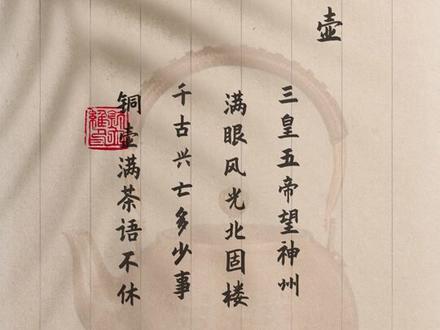 壶
三皇五帝望神州
满眼风光北固楼
千古兴亡多少事
铜壶满茶语不休